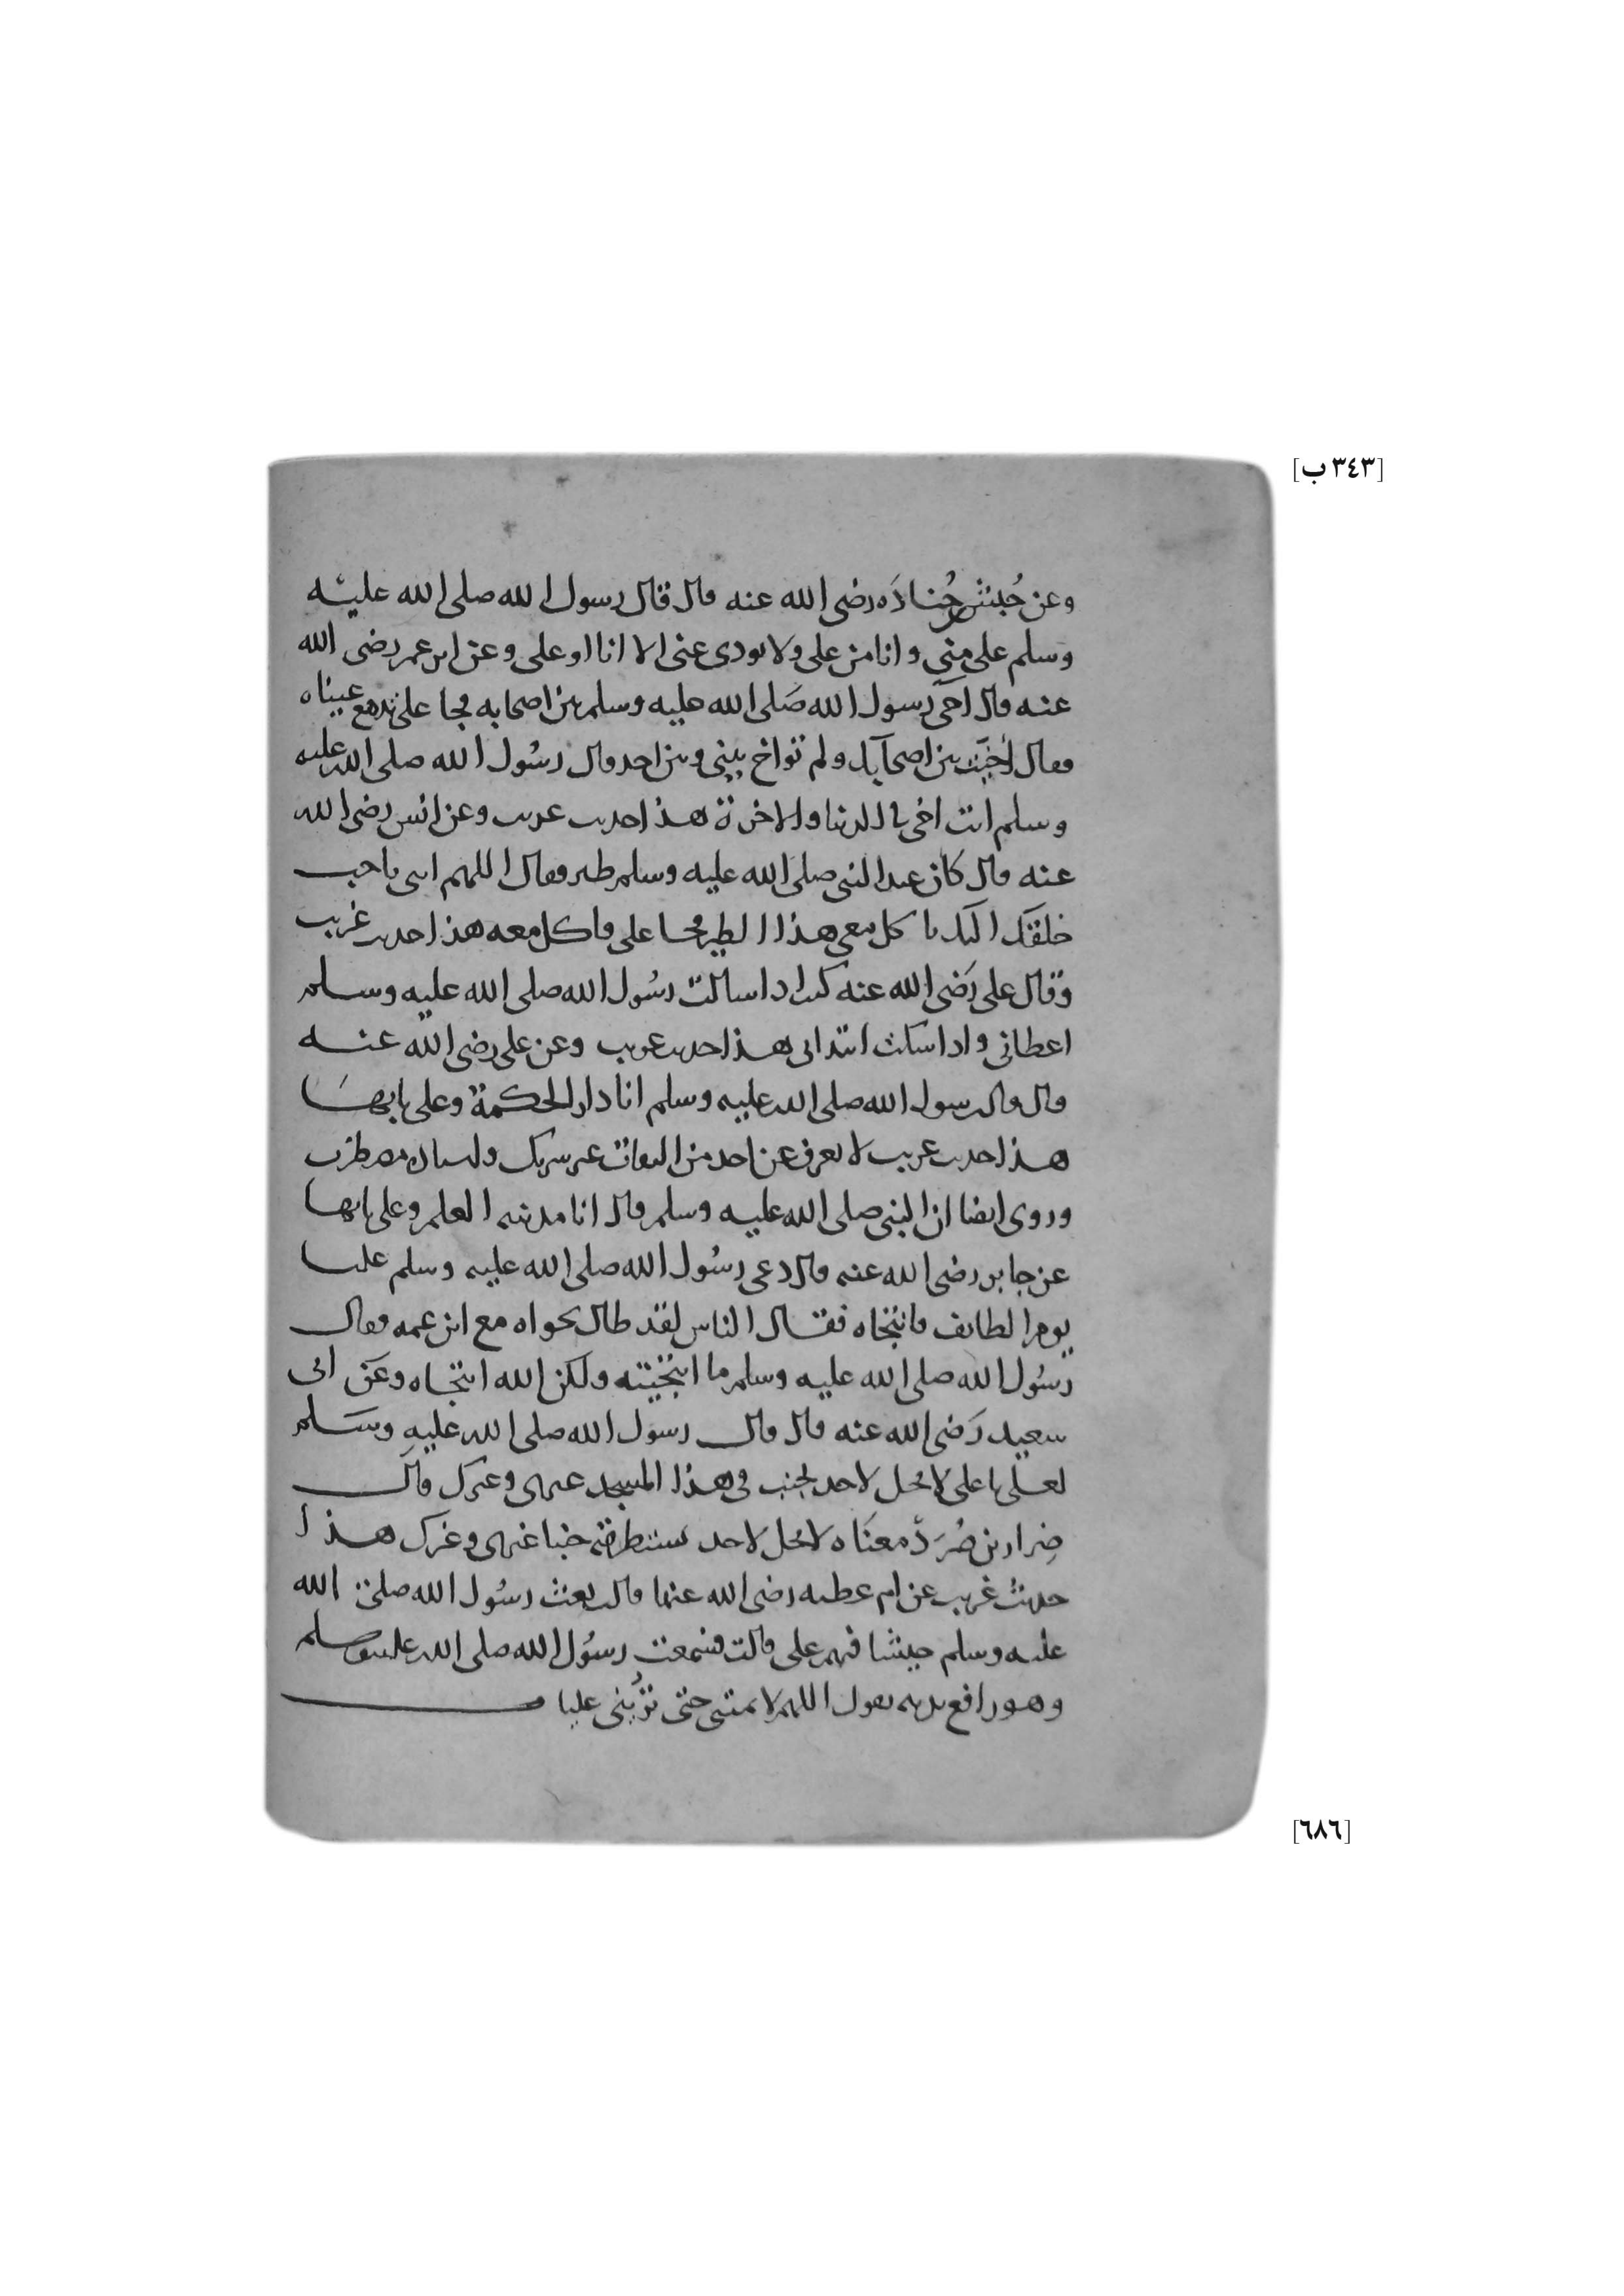 [٣٤٣ ب]
وعن حُبشي بن جُنادَه رضى الله عنه قال قال رسول الله صلى الله عليه
وسلم على مِنِى وانا من على ولا يودى عنى الا انا او على وعن ابن عمر رضى الله
عنه قال آخى رسول الله صَلى الله عليه وسلم بين اصحابه فجا على تدمع عيناه
فقال آخيَت بين اصحآبك ولم تواخ بينى وبين احد فقال رسُول الله صلى الله عليه
وسلم انت اخى فى الدنيا والاخرة هذا حديث غريب وعن انس رضى الله
عنه قال كان عند النبى صلى الله عليه وسلم طير فقال اللهم ايتى باحب
خلقكَ اليك ياكل معى هذا الطير فجا على فاكل معه هذا حديث غريب
وقال على رَضى الله عنه كنت اذا سالت رسُول الله صلى الله عليه وسلم
اعطانى واذا سكت ابتدانى هذا حديث غريب وعن على رضى الله عنه
قال قال رسول الله صلى الله عليه وسلم انا دار الحكمة وعلى بابهَا
هذا حديث غريب لا يعرف عن احد من الثقات غير شريك واسناده مضطرب
وروى ايضا ان النبى صلى الله عليه وسلم قال انا مدينه العلم وعلى بابها
عن جابر رضى الله عنه قال دعى رسُول الله صلى الله عليه وسلم عليا
يوم الطايف فانتجاه فقال الناس لقد طال نجواه مع ابن عمه فقال
رسُول الله صلى الله عليه وسلم ما انتجيته ولكن الله انتجاه وعَن ابى
سعيد رَضى الله عنه قال قال رسول الله صلى الله عليهِ وسَلم
لعلى يا على لا يحل لاحد يجنب فى هذا المسجد غيرى وغيرك قال
ضِرار بن صُرَد معنَاه لا يحل لاحد يستطرقه جنبا غيرى وغيرك هذا
حديث غريب عن ام عطيه رضى الله عنها قالت بعث رسُول الله صلى الله
عليه وسلم جيشا فيهم على قالت فسمعت رسُول الله صلى الله عليه وسلم
وهو رافع يديه يقول اللهم لا تمتنى حتى تُرِينى عليا
[٦٨٦]